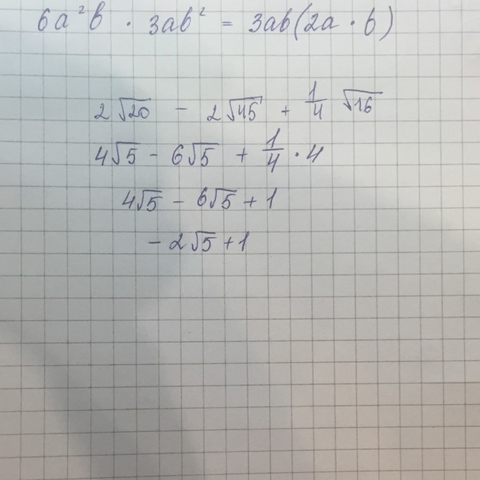 6a²b · 3ab² = 3ab(2a · b)
2√20 - 2√45 + 1/4 √16
4√5 - 6√5 + 1/4 · 4
4√5 - 6√5 + 1
- 2√5 + 1